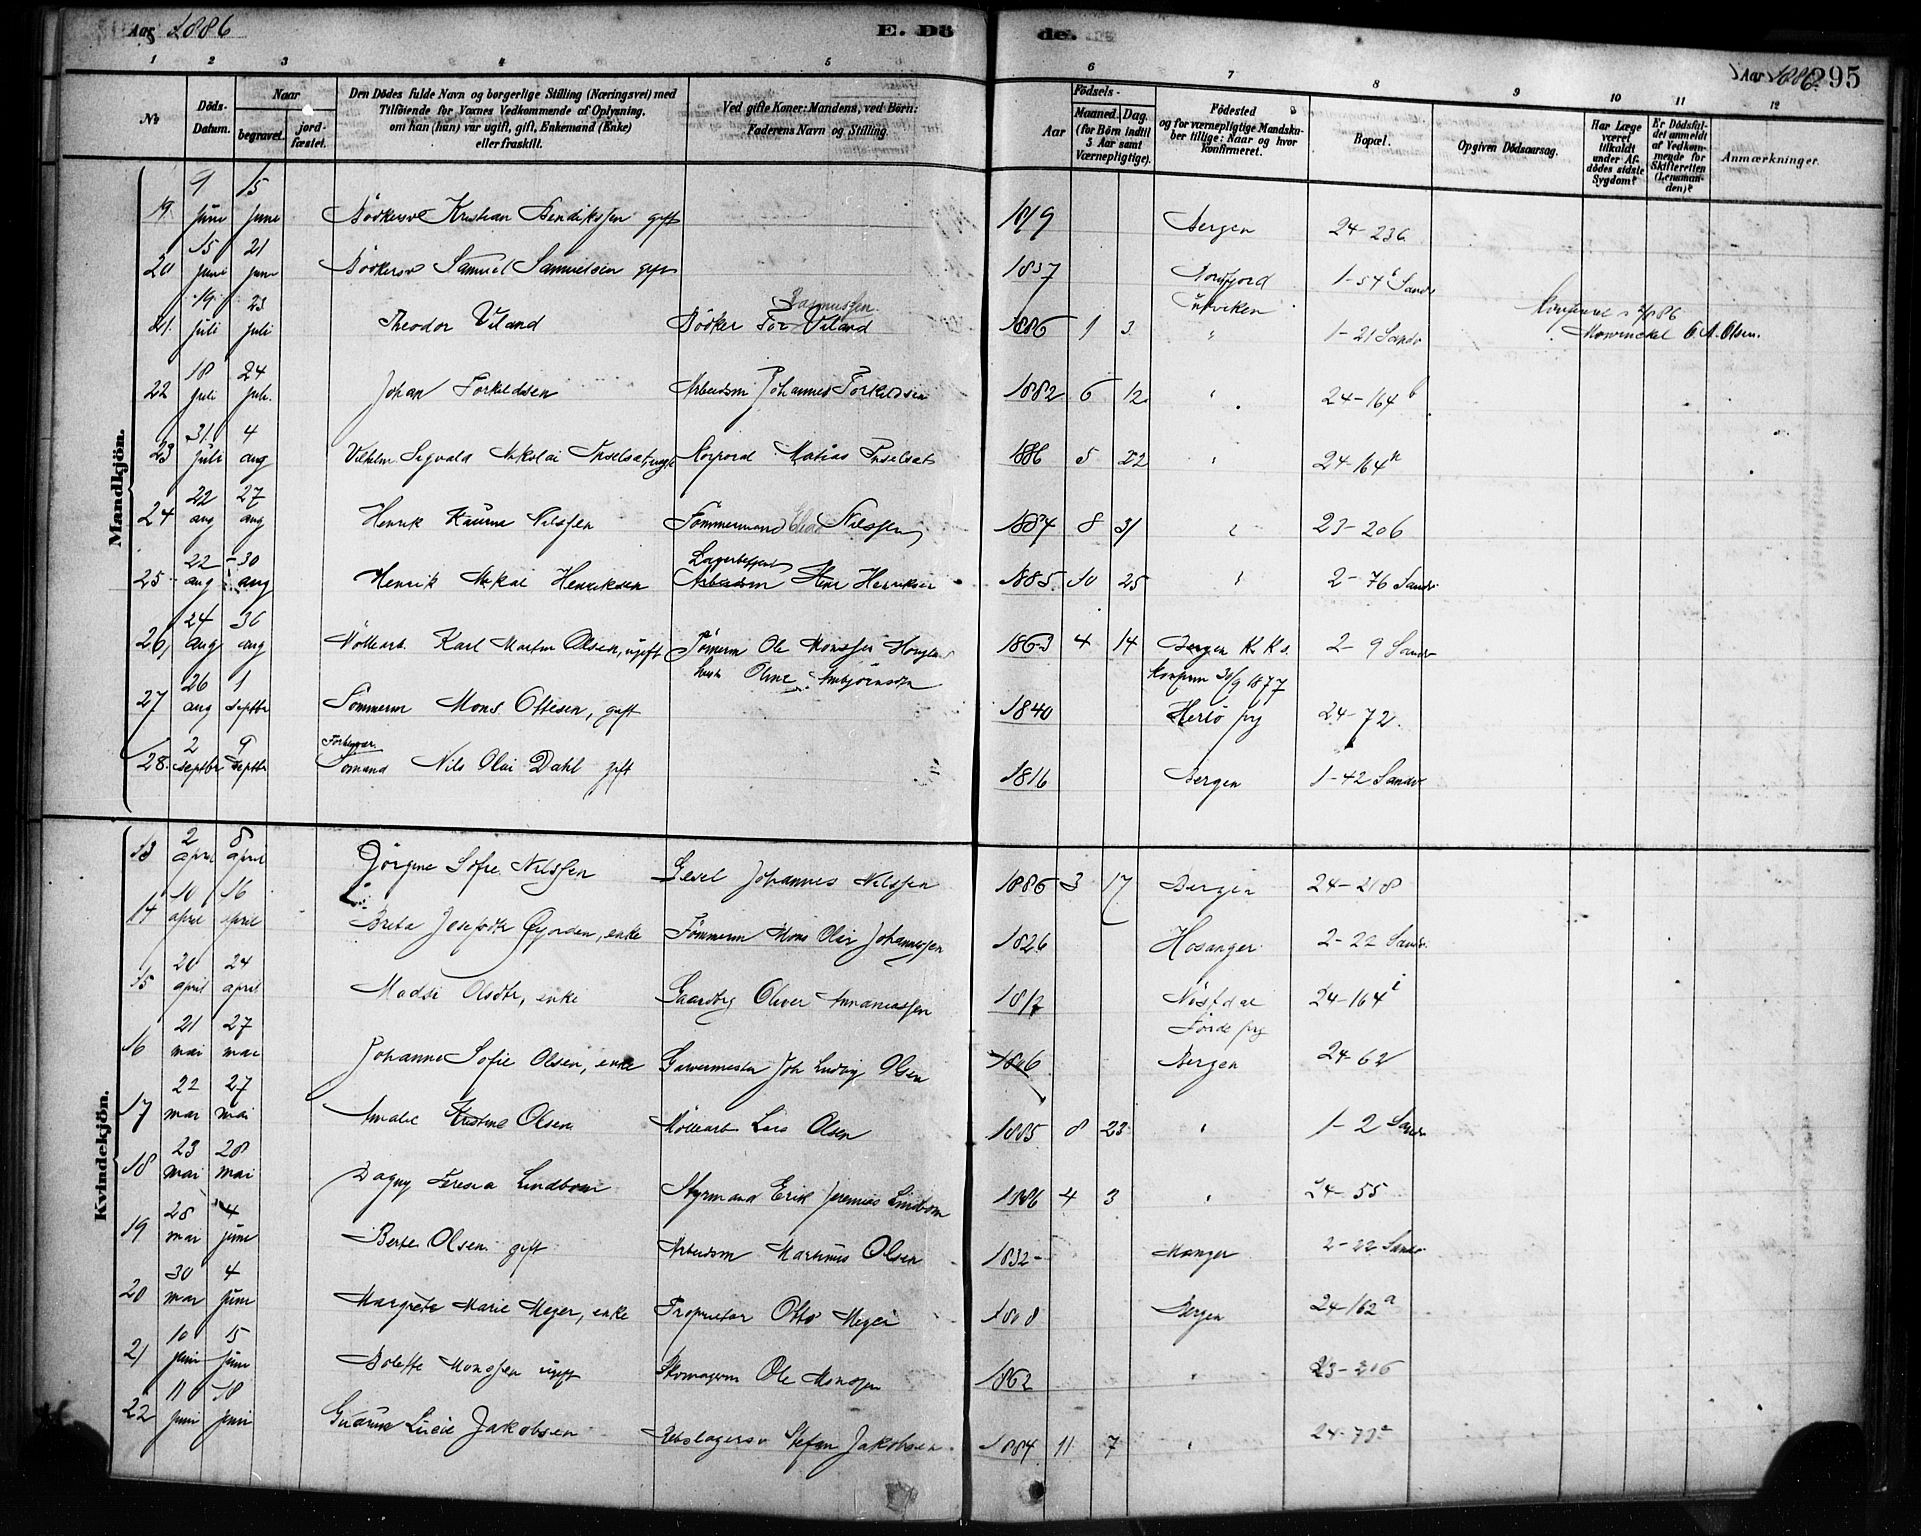 Aar 1886
E. Dö de.
Aar 1886. 295
1 2 3 4 5 6 7 8 9 10 11 12
No
Döds-Datum.
Naar
begravet.
jord-fæstet.
Den Dödes fulde Navn og borgerlige Stilling (Næringsvei) med
Tilföiende for Voxnes Vedkommende af Oplysning,
om han (hun) var ugift, gift, Enkemand (Enke)
eller fraskilt.
Ved gifte Koner: Mandens, ved Börn:
Faderens Navn og Stilling.
Födsels-
Aar
Maaned. Dag.
(for Börn indtil
5 Aar samt
Værnepligtige).
Födested
og for værnepligtige Mandska-
ber tillige: Naar og hvor
konfirmeret.
Bopæl.
Opgiven Dödsaarsag.
Har Læge
været
tilkaldt
under Af-
dödes sidste
Sygdom?
Er Dödsfal-
det anmeldt
af Vedkom-
mende for
Skifteretten
(Lensman-
den)?
Anmærkninger.
Mandkjön.
19 9 juni 15 juni Bödkersv Kristian Hendrikssen gift 1819 Bergen 24-236
20 15 juni 21 juni Bödkersv Samuel Samuelsen gift 1837 Nordfjord 1-54 Sandv
Utviken
21. 19 juli 23 juli Theodor Viland Bödker Tor Rasmussen Viland 1886 1 3 " 1-21 Sandv
Mowinckel O. A. Olsen.
22 18 juli 24 juli Johan Torkeldsen Arbeidsm Johannes Torkeldsen 1882 6 12 " 24-164b
23 31 juli 4 aug Vilhelm Sigvald Nikolai Mathias 1886 5 22 " 24-164
24 22 aug 27 aug Henrik Nilssen Tömmermand Nilssen 1884 8 31 " 23-206
25 22 aug 30 aug Henrik Nikolai Henriksen Arbeidsm Henriksen 1885 10 25 " 2-76 Sandv
26 24 aug 30 aug Möllearb. Karl Martin Olsen, ugift Tömerm Ole Monssen 1863 4 14 Bergen K. K. 2-9 Sandv
Oline
Konfirm 30/9 1877
27 26 aug 1 septbr Tömmerm Mons Ottesen, gift 1840 Herlö prg 24-72.
28. 2 septbr 9 septbr Sömand Nils Olai Dahl gift 1816 Bergen 1-42 Sandv
Kvindekjön.
13 2 april 8 april Jörgine Sofie Nilssen Gesel Johannes Nilssen 1886 3 17 Bergen 24-218
14 10 april 16 april Brita Josefsdtr enke Tömmerm Mons Olai Johannessen 1826 Hosanger 2-22 Sandv
15 20 april 24 april Madsi Olsdtr, enke Gaardbrg Oliver Annaniassen 1812 24-164
Förde prg
16 21 mai 27 mai Johanne Sofie Olsen, enke Garvermester Joh Ludvig Olsen 1806 Bergen 24-62
17 22 mai 27 mai Amalie Kristine Olsen Möllearb Lars Olsen 1885 8 23 " 1-2 Sandv
18 23 mai 28 mai Dagny Teresia Lindbom Styrmand Erik Jeremias Lindbom 1886 4 3 " 24-55
19 28 mai 4 juni Berte Olsen gift Arbeidsm Martinus Olsen 1832 Manger 2-22 Sandv
20 30 mai 4 juni Margrete Marie Meyer, enke Proprietær Otto Meyer 1808 Bergen 24-162a
21 10 juni 15 juni Bolette Monssen ugift Skomagerm Ole Monssen 1862 " 23-216
22 11 juni 18 juni Gudrun Lucie Jakobsen Rebslagersv Stefan Jakobsen 1884 11 7 " 24-79